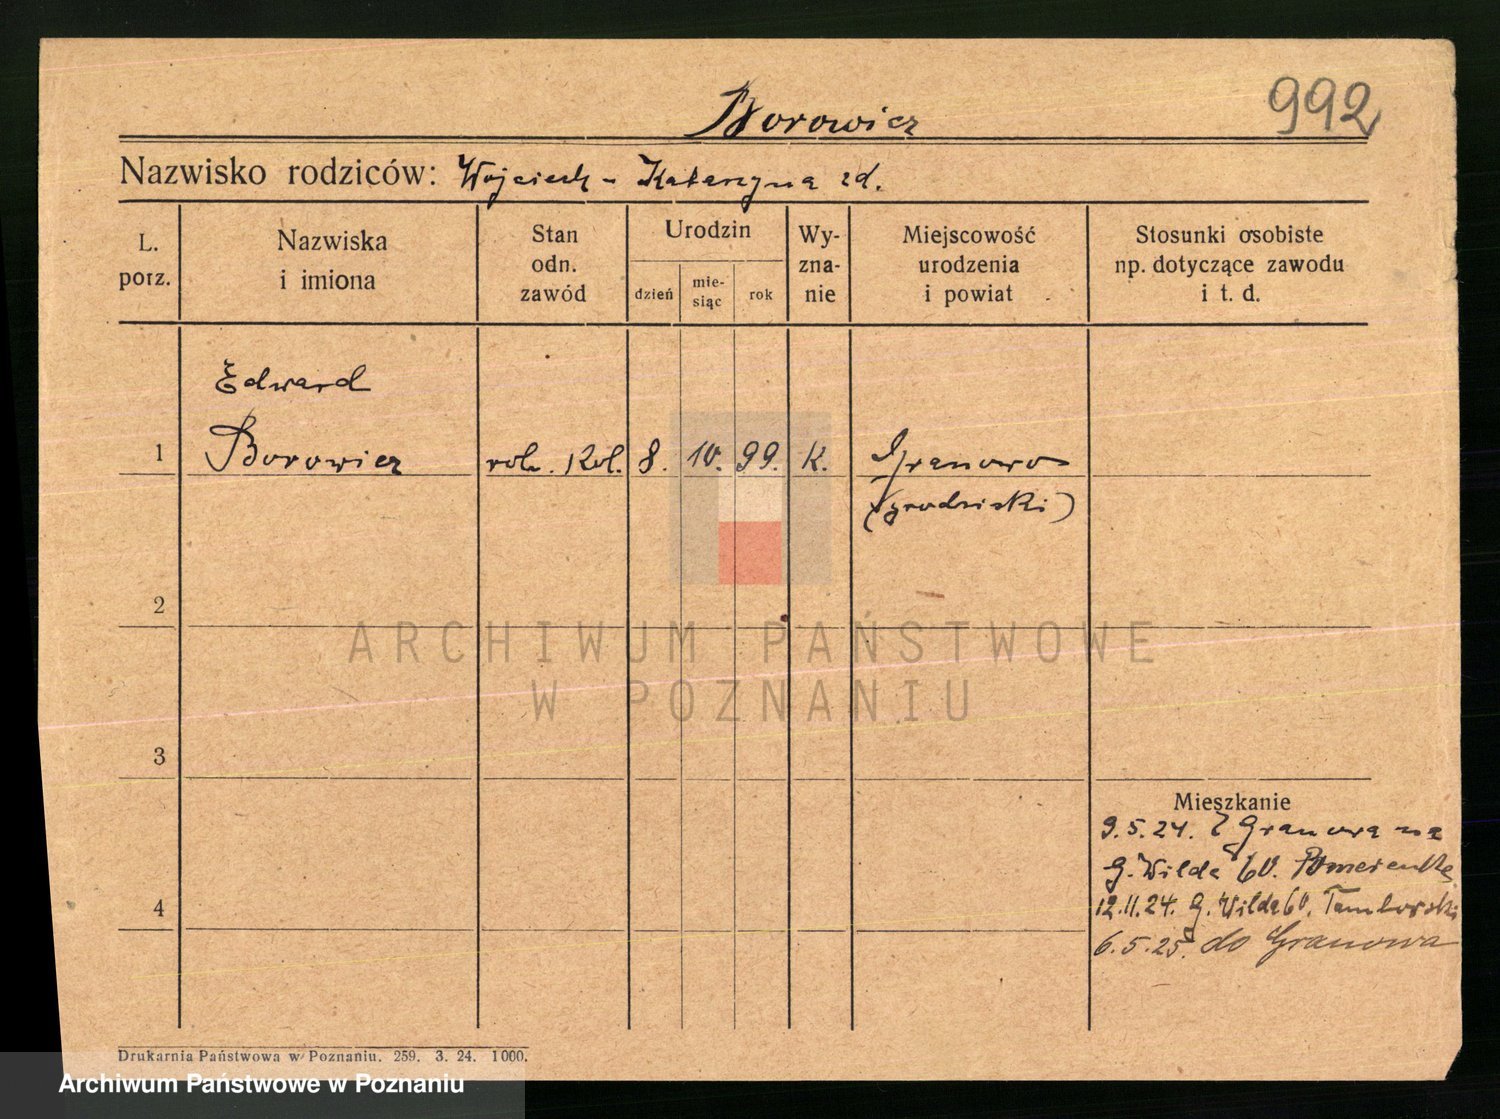 Borowicz
992
Nazwisko rodziców: Wojciech - Katarzyna zd.
L. porz.
Nazwiska i imiona
Stan odn. zawód
Urodzin
dzień
mie-
siąc
rok
Wy-
zna-
nie
Miejscowość urodzenia i powiat
Stosunki osobiste
np. dotyczące zawodu
i t. d.
Edward
1 Borowicz rob. Kol. 8. 10. 99. K. Granowo
(grodziski)
2
3
ARCHIWUM PAŃSTWOWE
W POZNANIU
Mieszkanie
9.5.24. Z Granowa na
G. Wilda 60.
4
12.11.24. G. Wilda 60. Tamborski
6.5.25. do Granowa
Drukarnia Państwowa w Poznaniu. 259. 3. 24. 1000.
Archiwum Państwowe w Poznaniu